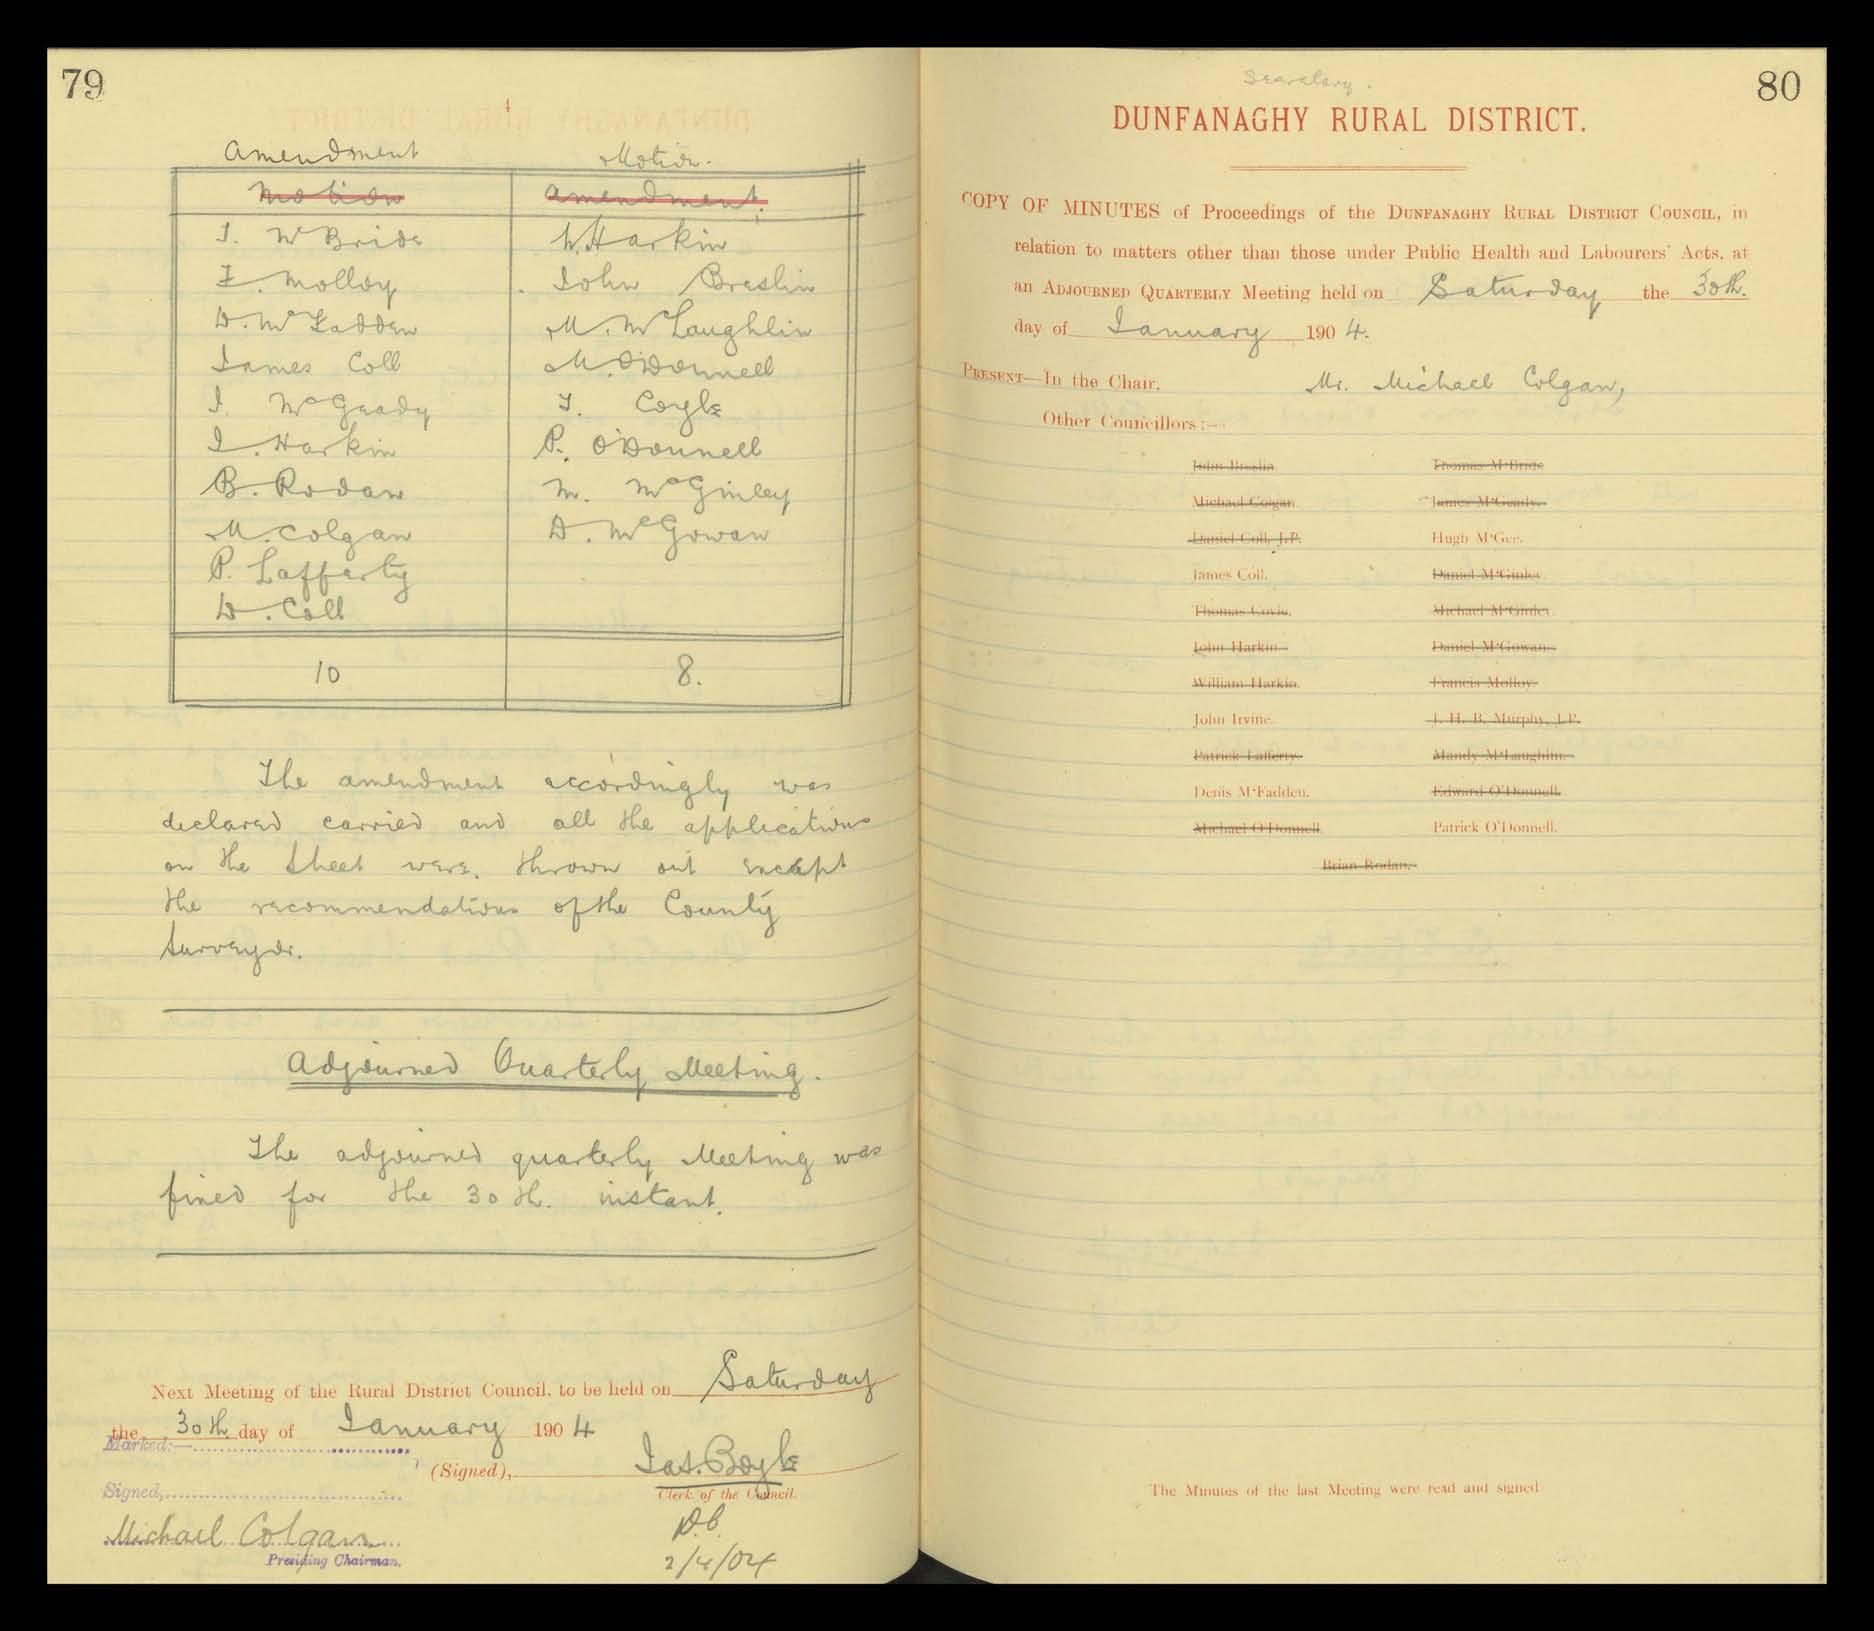 79
Amendment Motion.
Motion Amendment.
T. McBride W. Harkin
F. Molloy John Breslin
D. McFadden M. McLaughlin
James Coll M. O'Donnell
J. McGeady T. Coyle
J. Harkin P. O'Donnell
B. Rodan M. McGinley
M. Colgan D. McGowan
P. Lafferty
D. Coll
10 8.
The amendment accordingly was
declared carried and all the applications
on the sheet were thrown out except
the recommendations of the County
Surveyor.
Adjourned Quarterly Meeting.
The adjourned quarterly Meeting was
fixed for the 30th. instant.
Next Meeting of the Rural District Council, to be held on Saturday
the 30th day of January 1904
Marked:—
(Signed), Jas. Boyle
Clerk of the Council.
Signed,
Michael Colgan
Presiding Chairman.
D.C.
2/4/04
80
Secretary.
DUNFANAGHY RURAL DISTRICT.
COPY OF MINUTES of Proceedings of the DUNFANAGHY RURAL DISTRICT COUNCIL, in
relation to matters other than those under Public Health and Labourers' Acts, at
an ADJOURNED QUARTERLY Meeting held on Saturday the 30th.
day of January 1904.
PRESENT—In the Chair, Mr. Michael Colgan,
Other Councillors:—
John Breslin Thomas M'Bride
Michael Colgan. James M'Geady.
Daniel Coll, J.P. Hugh M'Gee.
James Coll. Daniel M'Ginley.
Thomas Coyle. Michael M'Ginley.
John Harkin. Daniel M'Gowan.
William Harkin. Francis Molloy.
John Irvine. J. H. B. Murphy, J.P.
Patrick Lafferty. Mandy M'Laughlin.
Denis M'Fadden. Edward O'Donnell.
Michael O'Donnell. Patrick O'Donnell.
Brian Rodan.
The Minutes of the last Meeting were read and signed